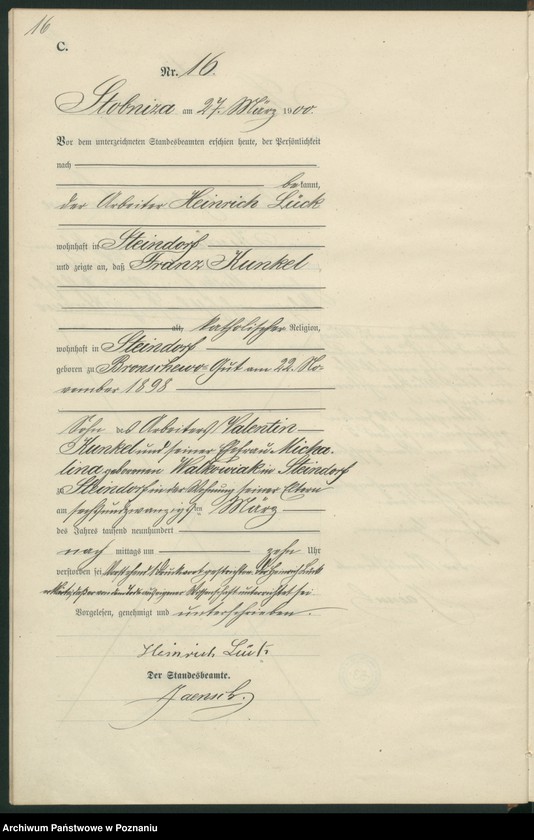 16
C.
Nr. 16.
Stobniza am 27. März 1900.
Vor dem unterzeichneten Standesbeamten erschien heute, der Persönlichkeit
nach
bekannt,
der Arbeiter Heinrich Lück
wohnhaft in Steindorf
und zeigte an, daß Franz Kunkel
alt, katholischer Religion,
wohnhaft in Steindorf
geboren zu Bronschewo-Gut am 22. No-
vember 1898
Sohn des Arbeiters Valentin
Kunkel und seiner Ehefrau Micha-
lina geborenen Walkowiak in Steindorf
zu Steindorf in der Wohnung seiner Eltern
am sechsundzwanzigsten März
des Jahres tausend neunhundert
nach mittags um zehn Uhr
verstorben sei. Vorstehend 1 Druckwort gestrichen. Der Heinrich Lück
erklärte, daß er vom Tode aus eigener Wissenschaft unterrichtet sei
Vorgelesen, genehmigt und unterschrieben.
Heinrich Lück
Der Standesbeamte.
Jaensch.
Archiwum Państwowe w Poznaniu